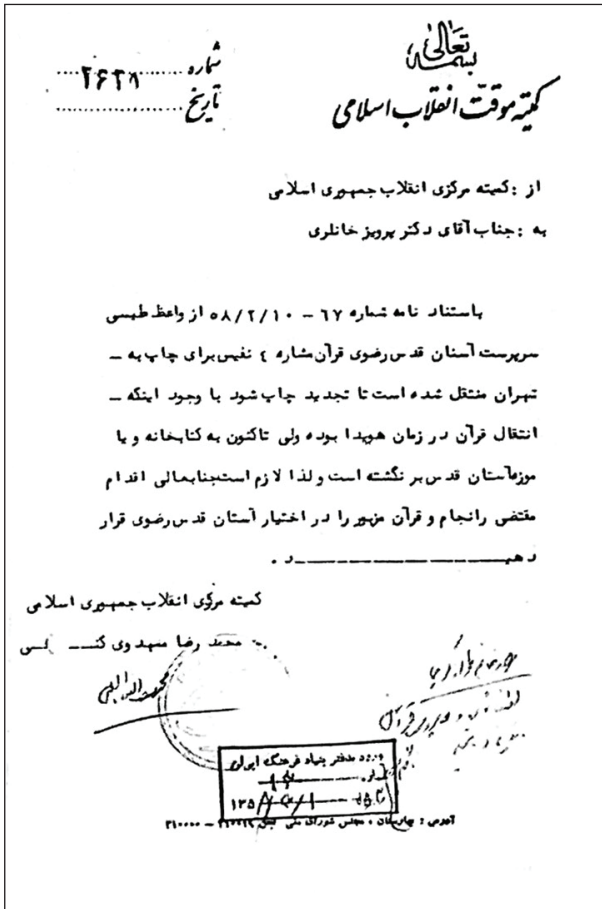 بسمه تعالی
کمیته موقت انقلاب اسلامی
شماره ۲۶۲۸
تاریخ
از : کمیته مرکزی انقلاب جمهوری اسلامی
به : جناب آقای دکتر پرویز خانلری
باستناد نامه شماره ۶۷ – ۵۸/۲/۱۰ از واعظ طبسی
سرپرست آستان قدس رضوی قرآن شماره ٤ نفیس برای چاپ به –
تهران منتقل شده است تا تجدید چاپ شود با وجود اینکه –
انتقال قرآن در زمان هویدا بوده ولی تاکنون به کتابخانه و یا
موزه آستان قدس بر نگشته است و لذا لازم است جنابعالی اقدام
مقتضی را انجام و قرآن مزبور را در اختیار آستان قدس رضوی قرار
دهیـــــــــــــد .
کمیته مرکزی انقلاب جمهوری اسلامی
محمد رضا مهدوی کنــــی
ورود بدفتر بنیاد فرهنگ ایران
آدرس : بهارستان ، مجلس شورای ملی